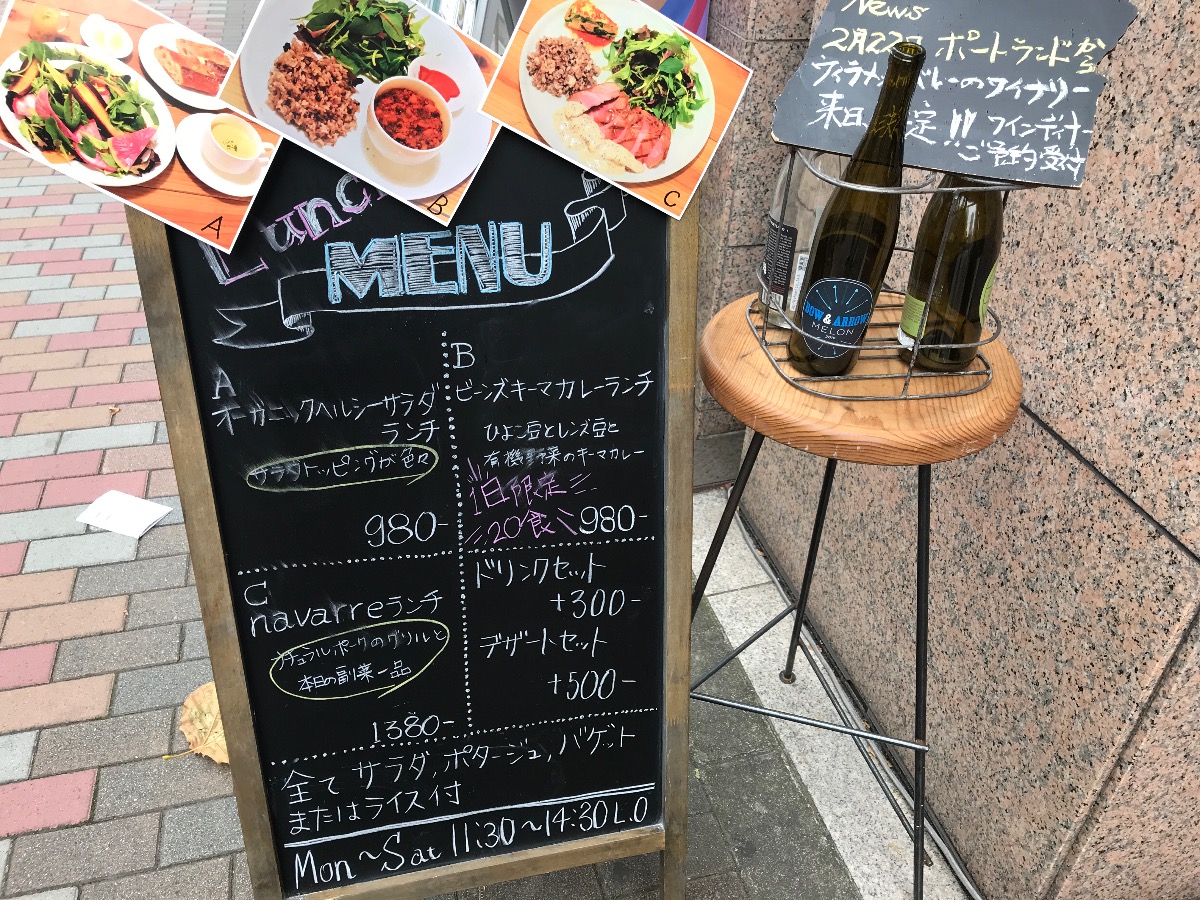 A
B
C
News
2月22日 ポートランドから
ウィラメットバレーのワイナリー
来日決定!! ワインディナー
ご予約受付
BOW & ARROW
MELON
Lunch
MENU
A
オーガニックヘルシーサラダ
ランチ
サラダトッピングが色々
980-
B
ビーンズキーマカレーランチ
ひよこ豆とレンズ豆と
有機野菜のキーマカレー
1日限定
20食
980-
C
navarreランチ
ナチュラルポークのグリルと
本日の副菜一品
1380-
ドリンクセット
+300-
デザートセット
+500-
全てサラダ,ポタージュ,バゲット
またはライス付
Mon~Sat 11:30~14:30 L.O